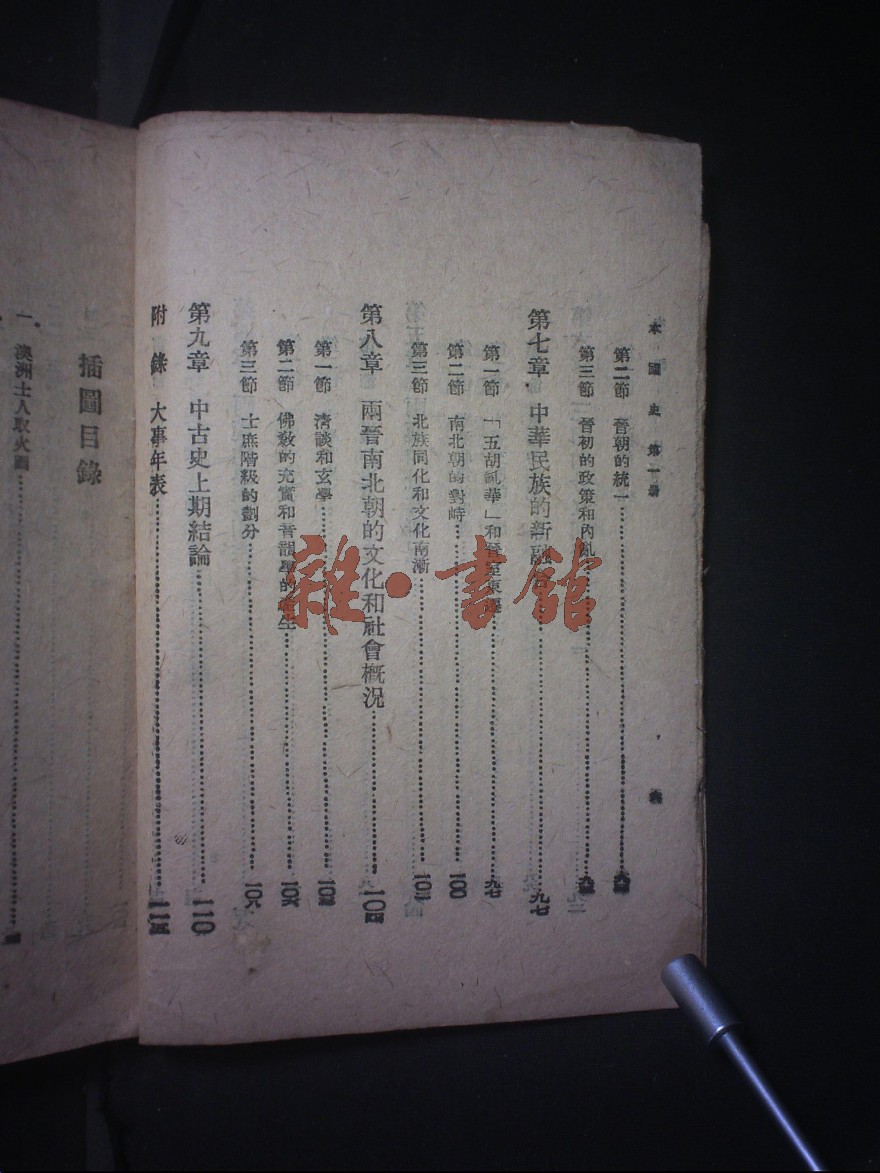 本國史 第一册
第二節 晉朝的統一
第三節 晉初的政策和內亂
第七章 中華民族的新融
九七
第一節 「五胡亂華」和晉室東
九七
第二節 南北朝的對峙
一〇〇
第三節 北族同化和文化南漸
第八章 兩晉南北朝的文化和社會概況
一〇四
第一節 清談和玄學
第二節 佛教的充實和音韻學的產生
一〇六
第三節 士庶階級的劃分
一〇八
第九章 中古史上期結論
一一〇
附錄 大事年表
一一五
插圖目錄
一 澳洲土人取火圖
雜·書館